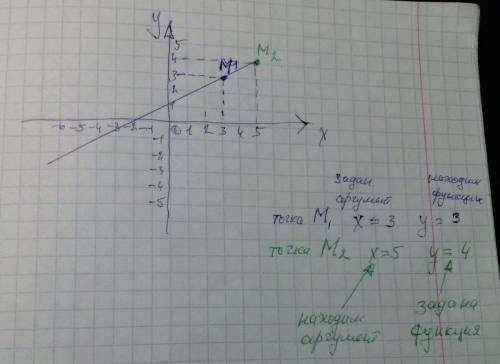 y
5
4
3
2
1
M1
M2
-6 -5 -4 -3 -2 -1 0 1 2 3 4 5
x
-1
-2
-3
-4
-5
задан аргумент
находим функцию
точка M1 x = 3 y = 3
точка M2 x = 5 y = 4
находим аргумент
задана функция